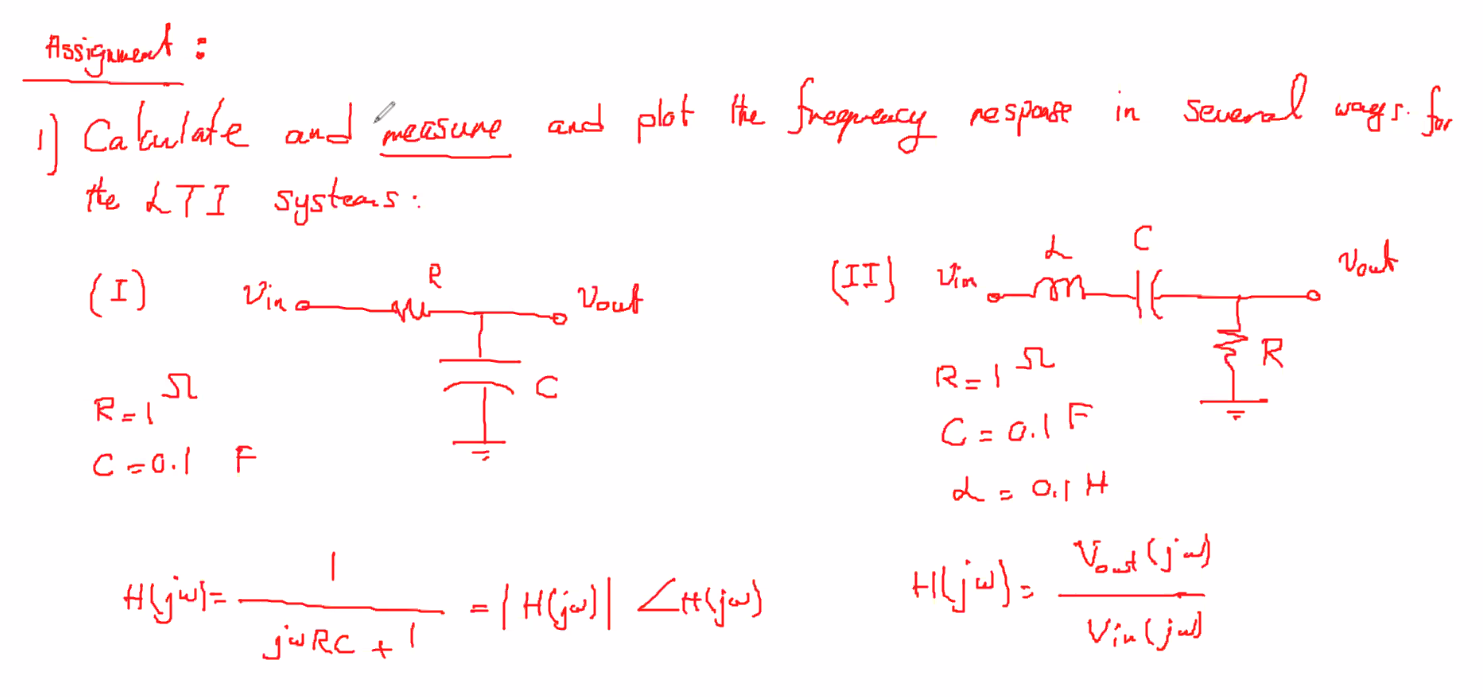 Assignment :
1) Calculate and measure and plot the frequency response in several ways. for
the LTI systems:
(I) Vin R Vout
C
R = 1 Ω
C = 0.1 F
H(jω) = 1 / (jωRC + 1) = |H(jω)| ∠H(jω)
(II) Vin L C Vout
R
R = 1 Ω
C = 0.1 F
L = 0.1 H
H(jω) = Vout(jω) / Vin(jω)